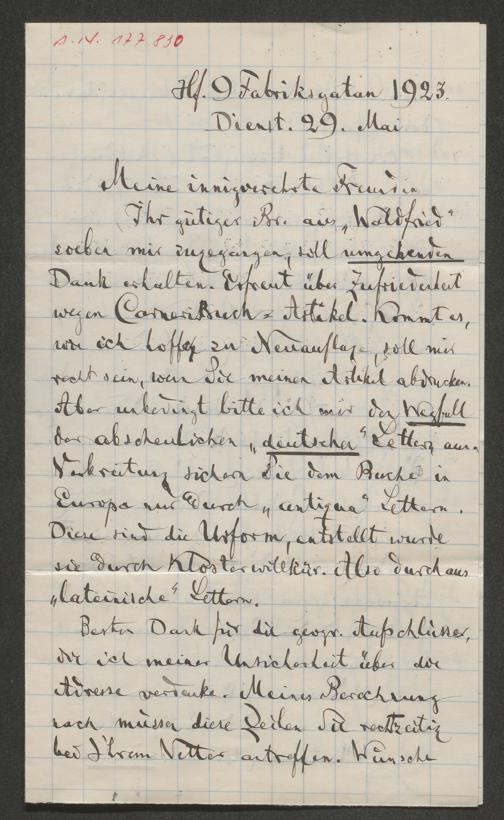 A.N. 177.830
Hf. 9 Fabriksgatan 1923.
Dienst. 29. Mai
Meine innigverehrte Freundin
Ihr gütiger Br. aus „Waldfried“
soeben mir zugegangen, soll umgehenden
Dank erhalten. Erfreut über Zufriedenheit
wegen CarneriBuch = Artikel. Kommt es,
wie ich hoffe, zu Neuauflage, soll mir
recht sein, wenn Sie meinen Artikel abdrucken.
Aber unbedingt bitte ich mir den Wegfall
der abscheulichen „deutschen“ Lettern aus.
Verbreitung sichern Sie dem Buche in
Europa nur durch „antiqua“ Lettern.
Diese sind die Urform, entstellt wurde
sie durch Klosterwillkür. Also durchaus
„lateinische“ Lettern.
Besten Dank für die geogr. Aufschlüsse,
die ich meiner Unsicherheit über die
Adresse verdanke. Meines Berechnung
nach müssen diese Zeilen Sie rechtzeitig
bei Ihrem Vetter antreffen. Wünsche